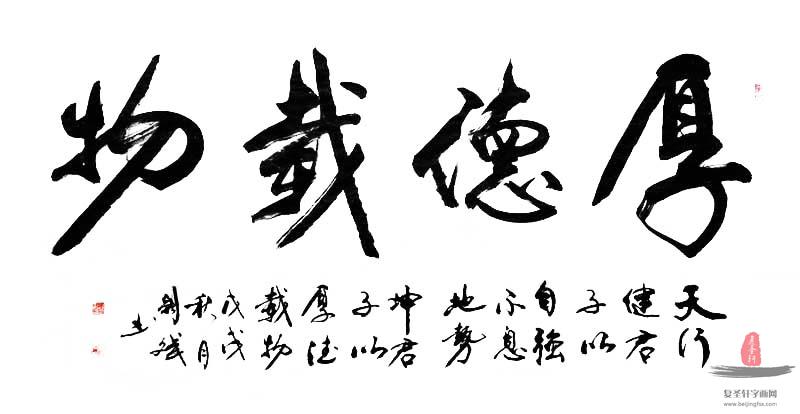 厚德載物
天行
健君
子以
自強
不息
地勢
坤君
子以
厚德
載物
戊戌
秋月
复圣轩字画网
www.beijingfsx.com